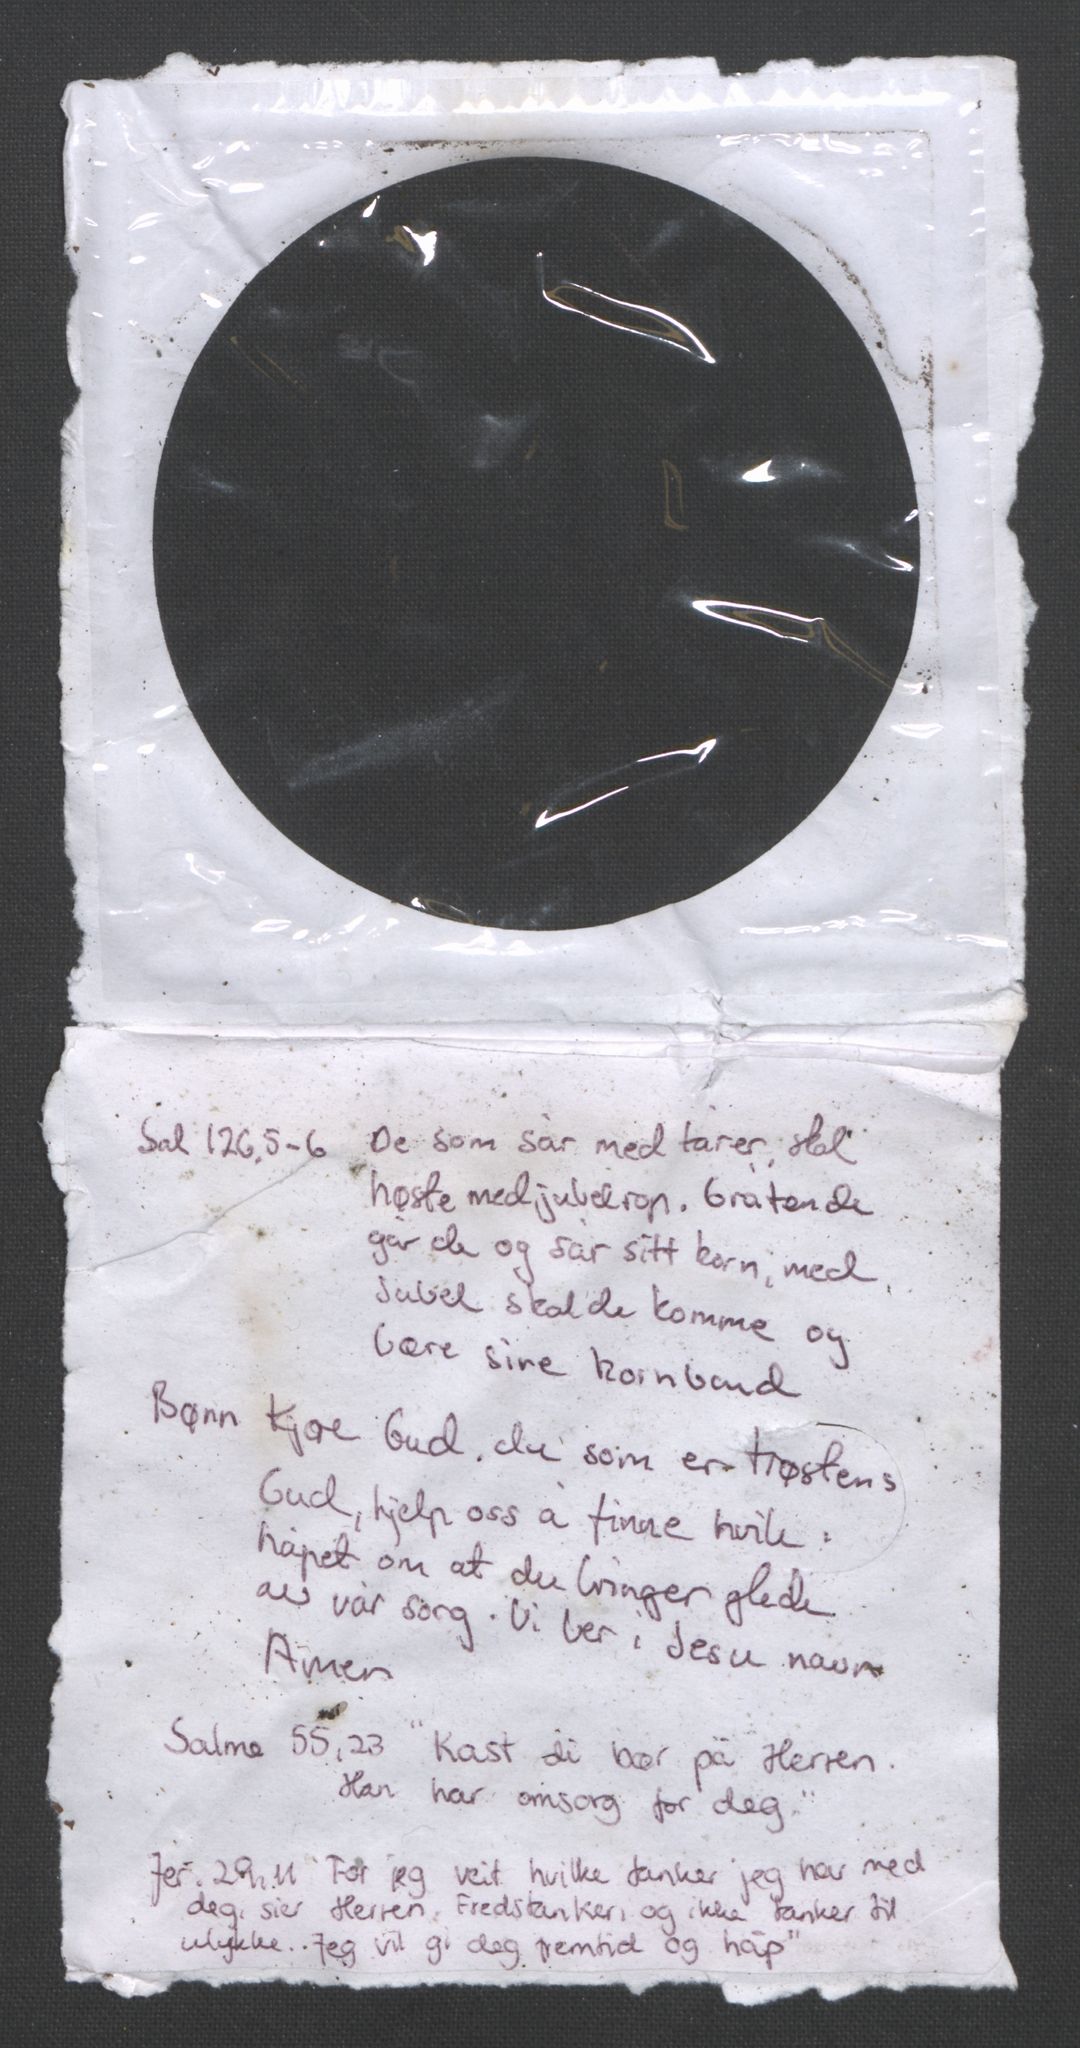 Sal 126,5-6 De som sår med tårer, skal
høste med jubelrop. Gråtende
går de og sår sitt korn, med
Jubel skal de komme og
bære sine kornband
Bønn Kjære Gud, du som er trøstens
Gud, hjelp oss å finne hvile i
håpet om at du bringer glede
av vår sorg. Vi ber i Jesu navn
Amen
Salme 55,23 "Kast di bør på Herren.
Han har omsorg for deg."
Jer. 29,11 "For jeg veit hvilke tanker jeg har med
deg, sier Herren. Fredstanker, og ikke tanker til
ulykke.. Jeg vil gi deg fremtid og håp"